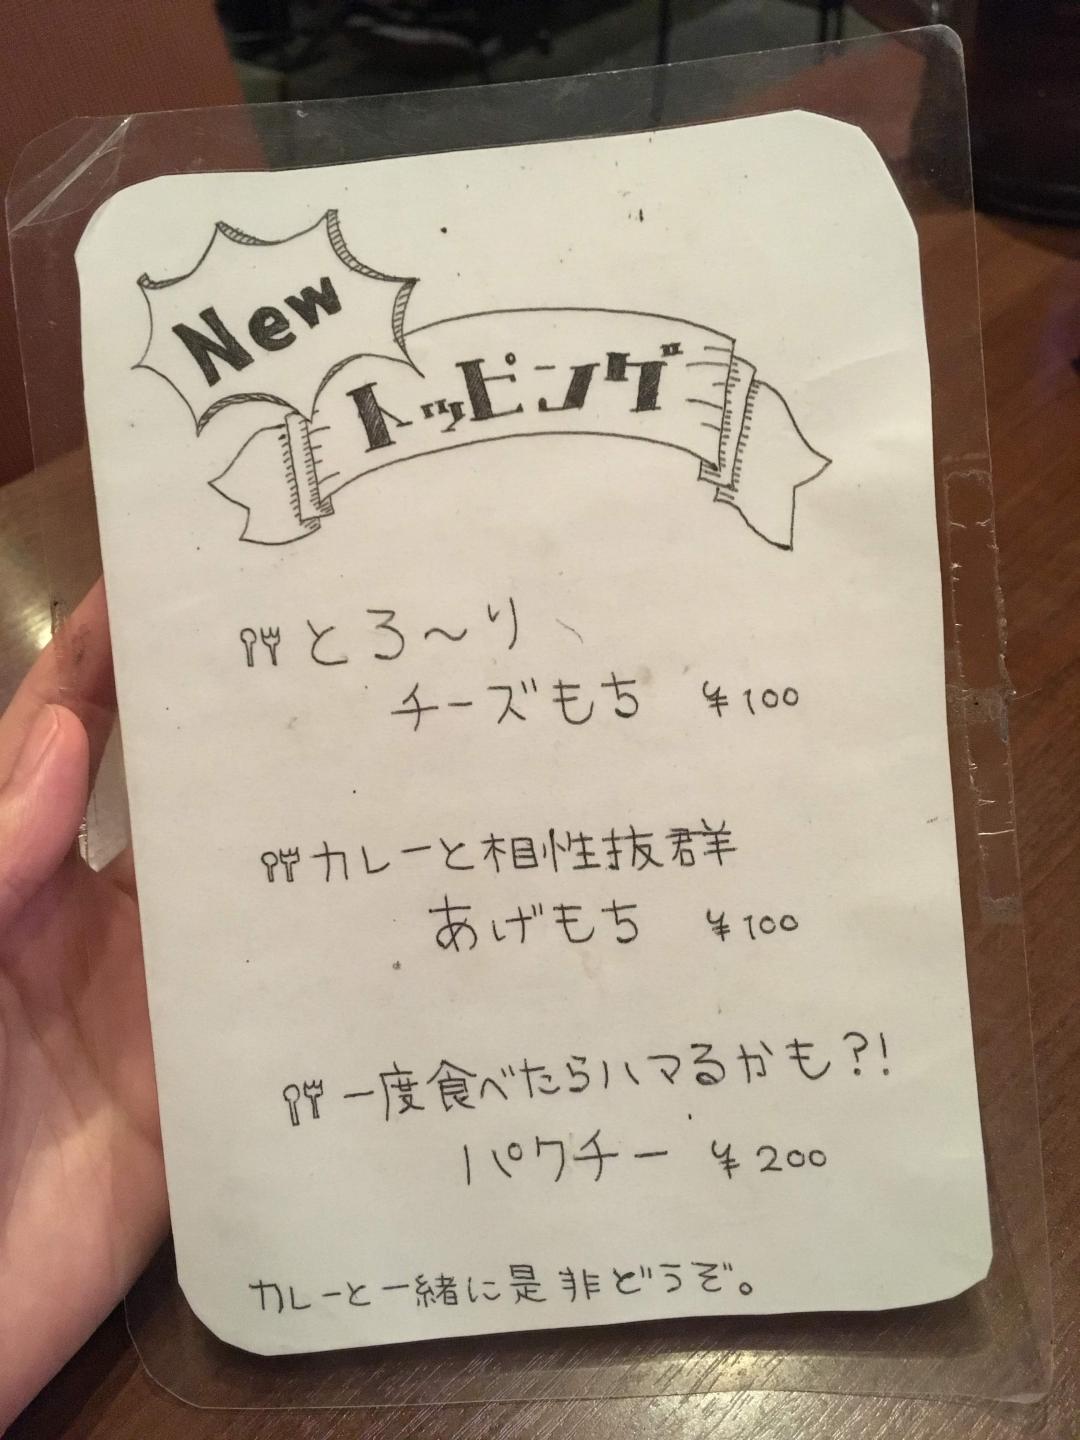 New
トッピング
とろ〜り
チーズもち ¥100
カレーと相性抜群
あげもち ¥100
一度食べたらハマるかも?!
パクチー ¥200
カレーと一緒に是非どうぞ。